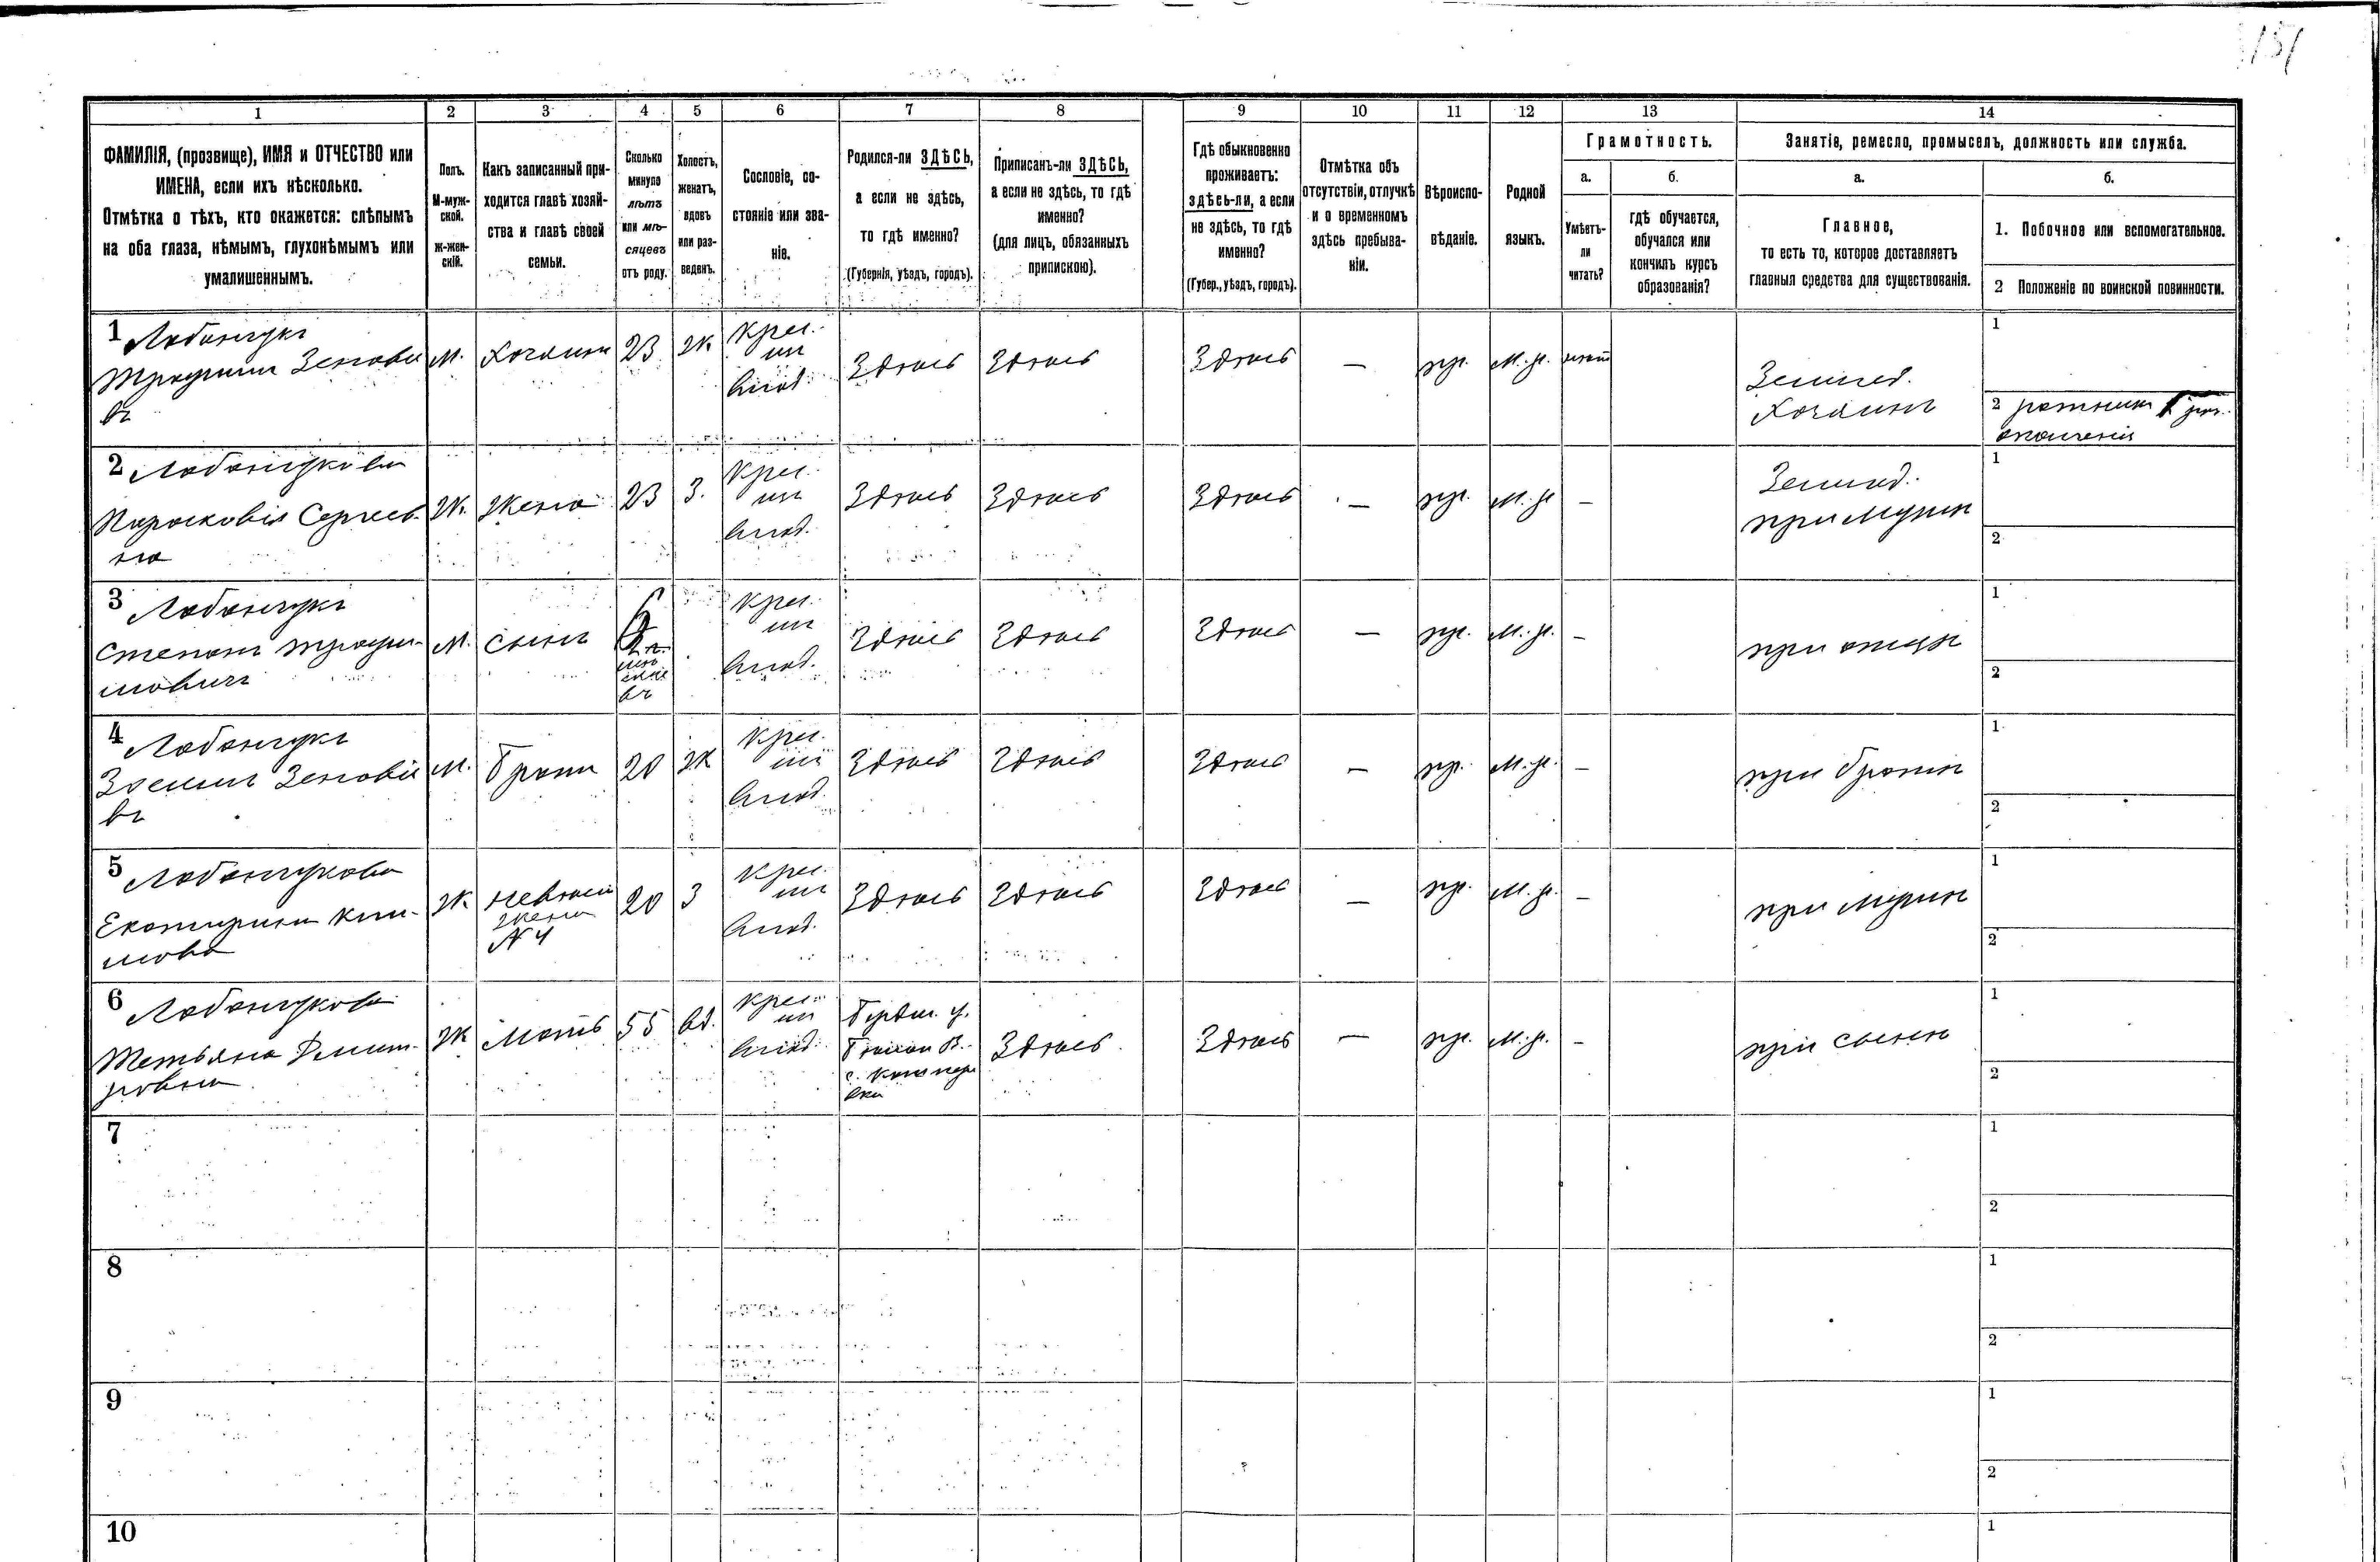 151
1
2
3
4
5
6
7
8
9
10
11
12
13
14
ФАМИЛІЯ, (прозвище), ИМЯ и ОТЧЕСТВО или
ИМЕНА, если ихъ нѣсколько.
Отмѣтка о тѣхъ, кто окажется: слѣпымъ
на оба глаза, нѣмымъ, глухонѣмымъ или
умалишеннымъ.
Полъ.
М-муж-
ской.
Ж-жен-
скій.
Какъ записанный при-
ходится главѣ хозяй-
ства и главѣ своей
семьи.
Сколько
минуло
лѣтъ
или мѣ-
сяцевъ
отъ роду.
Холостъ,
женатъ,
вдовъ
или раз-
веденъ.
Сословіе, со-
стояніе или зва-
ніе.
Родился-ли ЗДѢСЬ,
а если не здѣсь,
то гдѣ именно?
(Губернія, уѣздъ, городъ).
Приписанъ-ли ЗДѢСЬ,
а если не здѣсь, то гдѣ
именно?
(для лицъ, обязанныхъ
припискою).
Гдѣ обыкновенно
проживаетъ:
здѣсь-ли, а если
не здѣсь, то гдѣ
именно?
(Губер., уѣздъ, городъ).
Отмѣтка объ
отсутствіи, отлучкѣ
и о временномъ
здѣсь пребыва-
ніи.
Вѣроиспо-
вѣданіе.
Родной
языкъ.
Грамотность.
а.
Умѣетъ-
ли
читать?
б.
гдѣ обучается,
обучался или
кончилъ курсъ
образованія?
Занятіе, ремесло, промыселъ, должность или служба.
а.
Главное,
то есть то, которое доставляетъ
главныя средства для существованія.
б.
1. Побочное или вспомогательное.
2 Положеніе по воинской повинности.
1 Лобончукъ
Трофимъ Зенові
въ
М.
Хозяинъ
23
ж
Крес.
из
влад.
Здѣсь
Здѣсь
Здѣсь
—
пр.
м.р.
нѣт
Землед.
Хозяинъ
1
2 ратникъ
ополченія
2 Лобончукова
Парасковія Сергеев
на
Ж.
Жена
23
З.
Крес.
из
влад.
Здѣсь
Здѣсь
Здѣсь
—
пр.
м.р
—
Землед.
при мужѣ
1
2
3 Лобончукъ
Степанъ Трофи-
мовичъ
М.
сынъ
6
Крес.
из
влад.
Здѣсь
Здѣсь
Здѣсь
—
пр.
м.р.
—
при отцѣ
1
2
4 Лобончукъ
Зосимъ Зенові
въ
М.
Братъ
20
ж
Крес.
из
влад.
Здѣсь
Здѣсь
Здѣсь
—
пр.
м.р.
—
при братѣ
1
2
5 Лобончукова
Екатерина Кли-
мова
Ж
жена
№ 4
20
З
Крес.
из
влад.
Здѣсь
Здѣсь
Здѣсь
—
пр.
м.р.
—
при мужѣ
1
2
6 Лобончукова
Татьяна Дмит-
ровна
Ж
Мать
55
вд.
Крес.
из
влад.
Бердич. у.
Здѣсь
Здѣсь
—
пр.
м.р.
—
при сынѣ
1
2
7
1
2
8
1
2
9
1
2
10
1